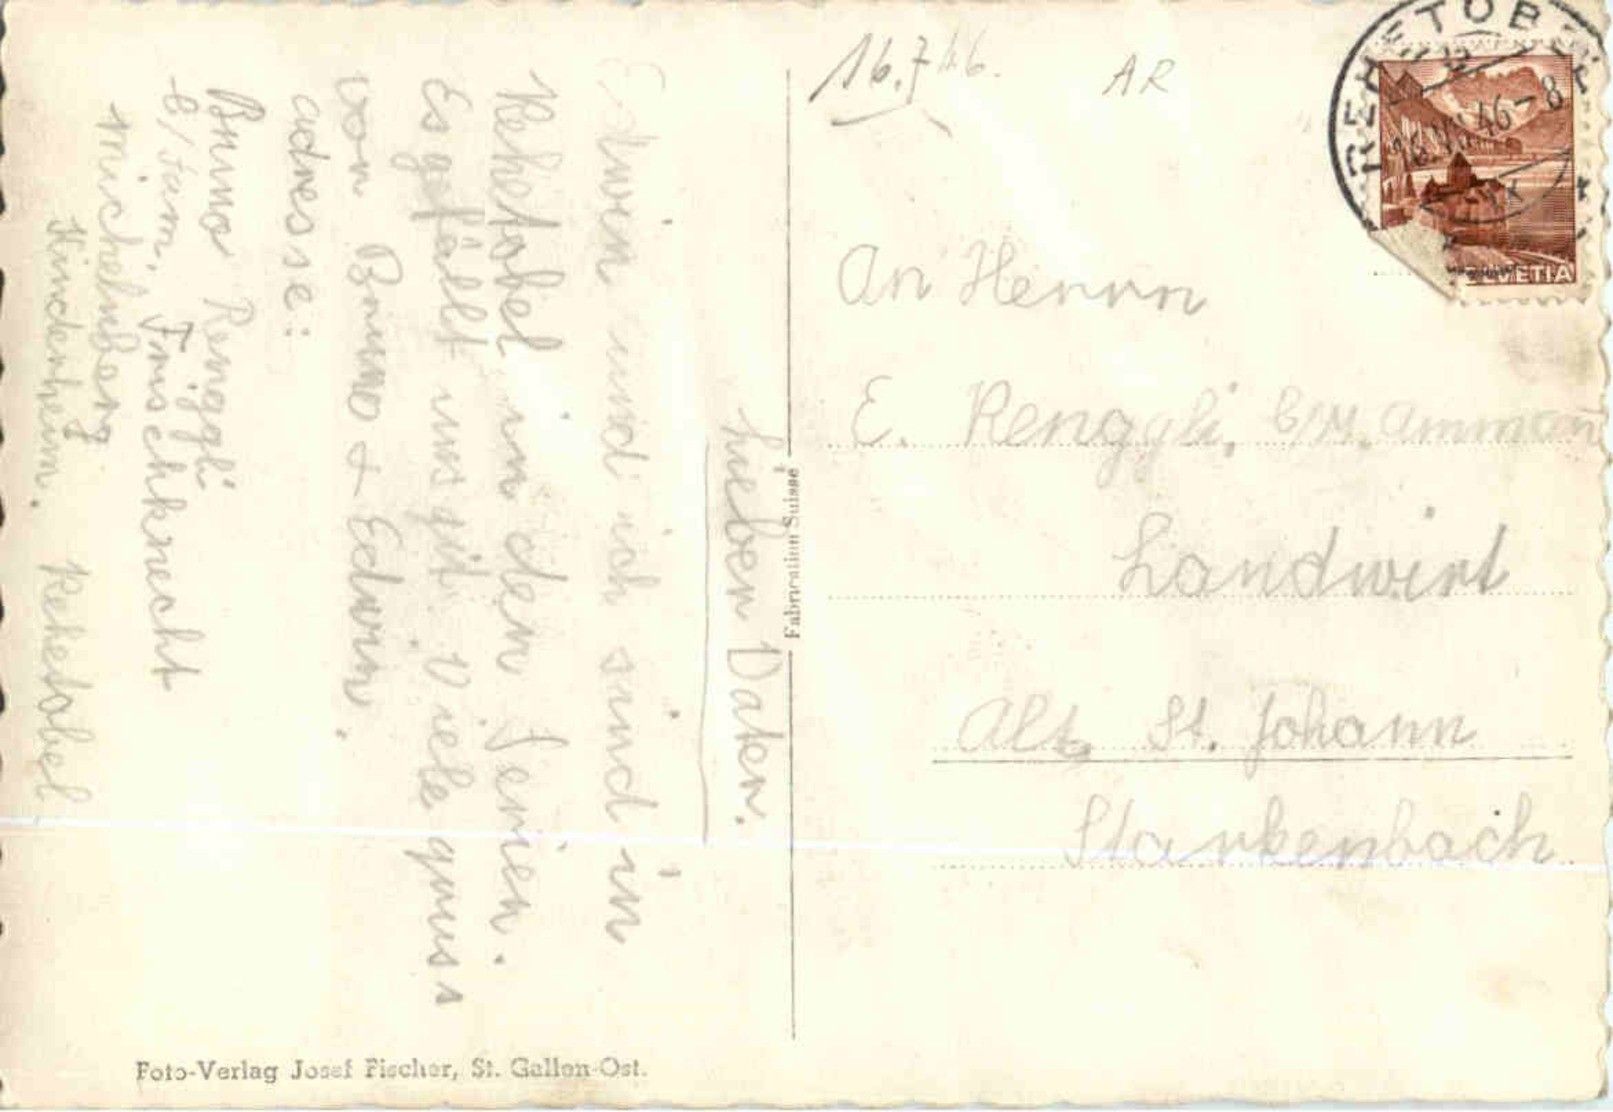 16.7.46.
AR
REHETOBEL
16.VII.46-8
HELVETIA
An Herrn
E. Renggli, b/M. Ammann
Landwirt
Alt St. Johann
Starkenbach
Fabrication Suisse
Lieber Vater.
Edwin und ich sind in
Rehetobel in den Ferien.
Es gefällt uns gut. Viele gruss
von Bruno + Edwin.
adresse:
Bruno Renggli
b/Fam. Frischknecht
Michelnberg
Kinderheim. Rehetobel
Foto-Verlag Josef Fischer, St. Gallen-Ost.